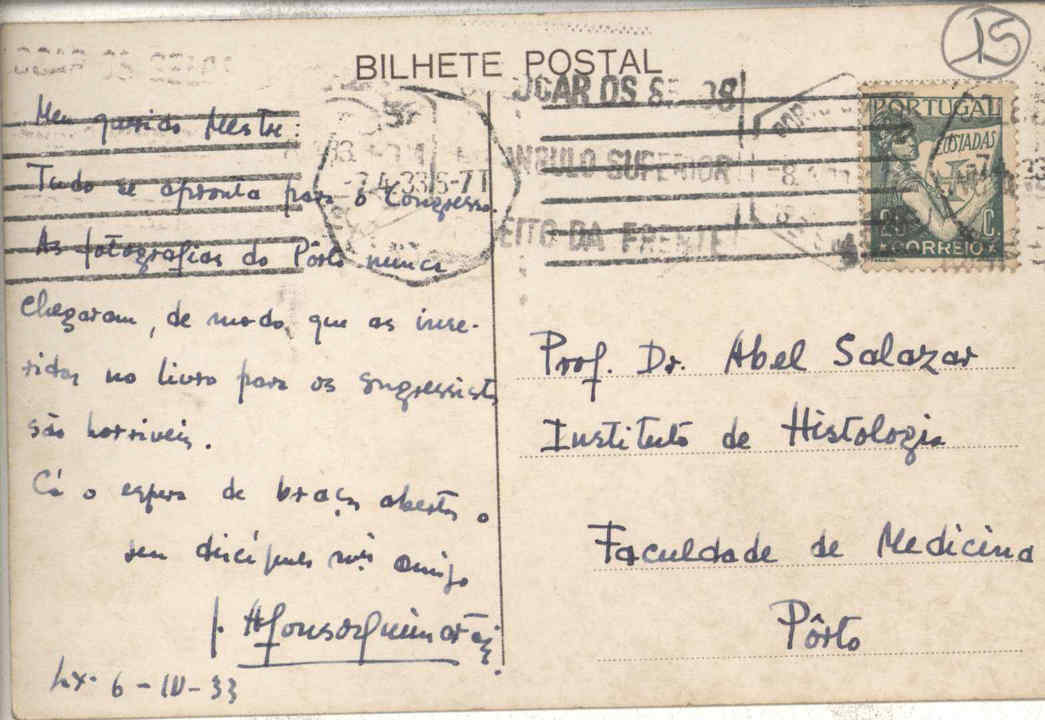 15
BILHETE POSTAL
PORTUGAL
LUSIADAS
25 C.
CORREIO
ANGULO SUPERIOR
EITO DA FRENTE
Meu querido Mestre:
Tudo se apronta para o Congresso.
As fotografias do Pôrto nunca
chegaram, de modo que as inse-
ridas no livro para os congressistas
são horriveis.
Cá o espera de braços abertos o
seu discípulo mui amigo
J. Afonso Guimarães
Lx. 6-IV-33
Prof. Dr. Abel Salazar
Instituto de Histologia
Faculdade de Medicina
Pôrto